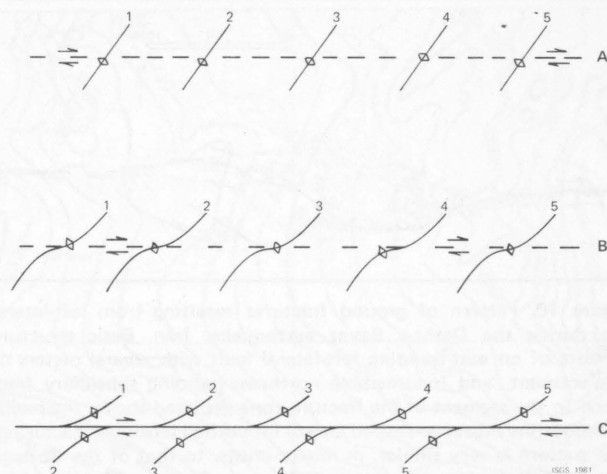 1 2 3 4 5
A
1 2 3 4 5
B
1 2 3 4 5
C
2 3 4 5
ISGS 1981